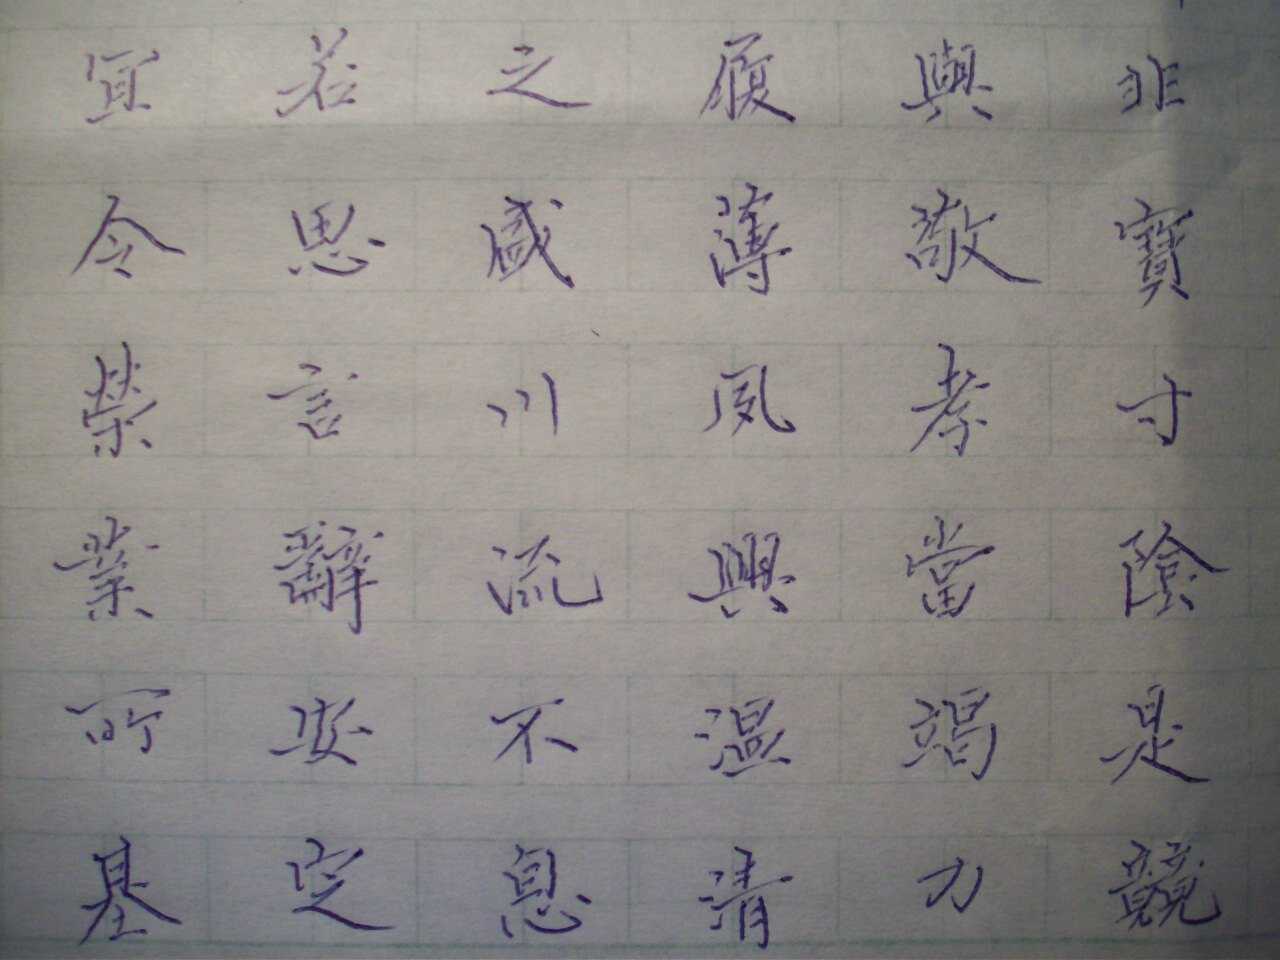 非寶寸陰是競
與敬孝當竭力
履薄夙興温清
之盛川流不息
若思言辭安定
宜令榮業所基